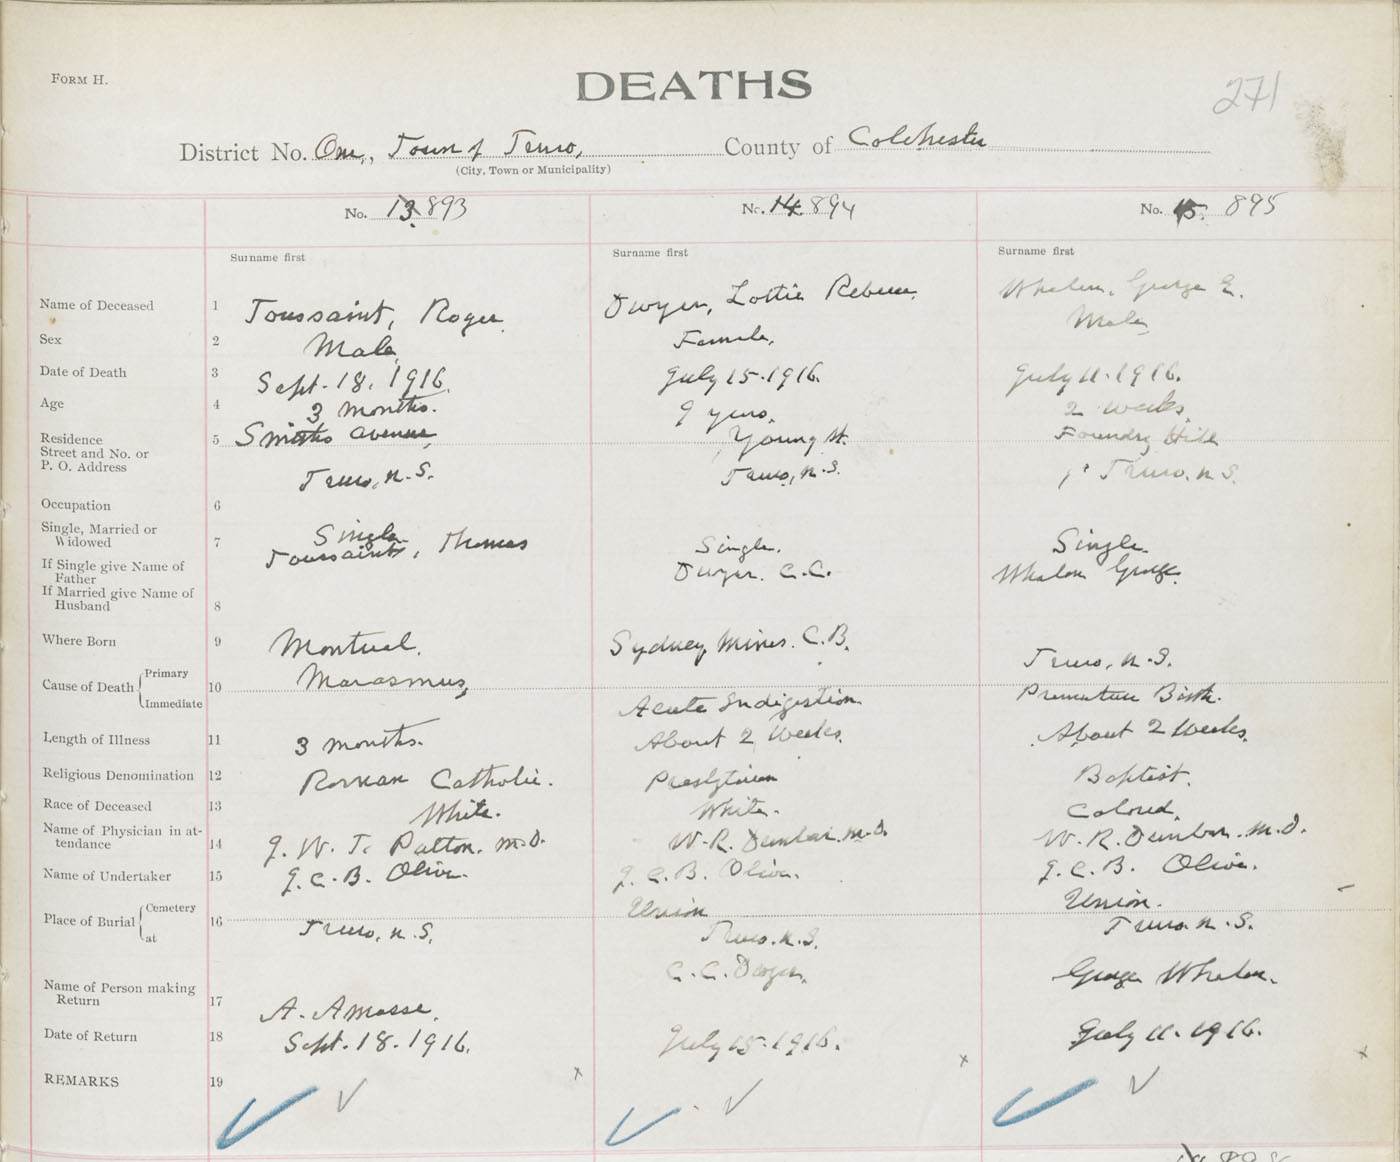 FORM H.
DEATHS
271
District No. One, Town of Truro, County of Colchester
(City, Town or Municipality)
No. 13. 893
No. 14. 894
No. 15. 895
Surname first
Surname first
Surname first
Name of Deceased 1 Toussaint, Roger Dwyer, Lottie Rebecca Whalen, George E.
Sex 2 Male Female. Male
Date of Death 3 Sept. 18. 1916. July 15. 1916. July 11. 1916.
Age 4 3 months. 9 years. 2 weeks.
Residence 5 Smiths avenue, Young St. Foundry Hill
Street and No. or
P. O. Address Truro, N.S. Truro, N.S. Truro, N.S.
Occupation 6
Single, Married or Single Single. Single.
Widowed 7
If Single give Name of Toussaint, Thomas Dwyer. C.C. Whalen George.
Father
If Married give Name of
Husband 8
Where Born 9 Montreal. Sydney Mines. C.B. Truro, N.S.
Cause of Death Primary 10 Marasmus,
Immediate Acute Indigestion Premature Birth.
Length of Illness 11 3 months. About 2 Weeks. About 2 Weeks.
Religious Denomination 12 Roman Catholic. Presbyterian Baptist.
Race of Deceased 13 White. White. Colored.
Name of Physician in at-
tendance 14 J. W. T. Patton. M.D. W. R. Dunbar. M.D. W. R. Dunbar. M.D.
Name of Undertaker 15 J. C. B. Olive. J. C. B. Olive. J. C. B. Olive.
Place of Burial Cemetery 16 Union Union.
at Truro, N.S. Truro. N.S. Truro. N.S.
Name of Person making C. C. Dwyer. George Whalen.
Return 17 A. Amasse.
Date of Return 18 Sept. 18. 1916. July 15. 1916. July 11. 1916.
x x x
REMARKS 19 ✓ ✓ ✓ ✓ ✓ ✓